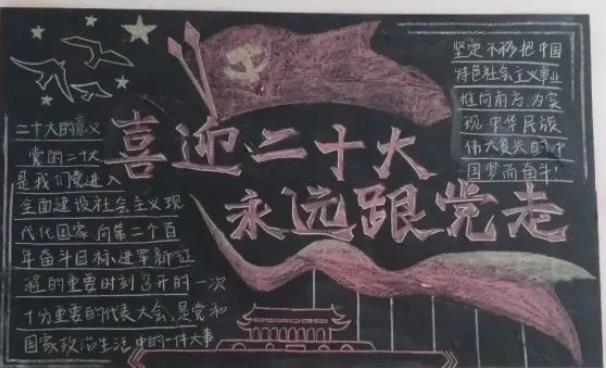 喜迎二十大
永远跟党走
二十大的意义
党的二十大
是我们党进入
全面建设社会主义现
代化国家,向第二个百
年奋斗目标进军新征
程的重要时刻召开的一次
十分重要的代表大会、是党和
国家政治生活中的一件大事
坚定不移把中国
特色社会主义事业
推向前方为实
现中华民族
伟大复兴的中
国梦而奋斗!